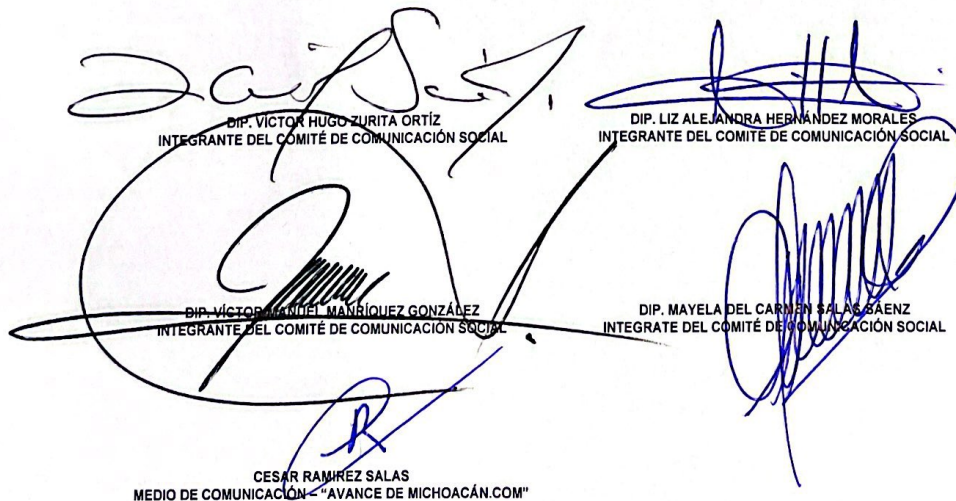 DIP. VÍCTOR HUGO ZURITA ORTÍZ
INTEGRANTE DEL COMITÉ DE COMUNICACIÓN SOCIAL
DIP. LIZ ALEJANDRA HERNÁNDEZ MORALES
INTEGRANTE DEL COMITÉ DE COMUNICACIÓN SOCIAL
DIP. VÍCTOR MANUEL MANRÍQUEZ GONZÁLEZ
INTEGRANTE DEL COMITÉ DE COMUNICACIÓN SOCIAL
DIP. MAYELA DEL CARMEN SALAS SÁENZ
INTEGRATE DEL COMITÉ DE COMUNICACIÓN SOCIAL
CESAR RAMIREZ SALAS
MEDIO DE COMUNICACIÓN – "AVANCE DE MICHOACÁN.COM"